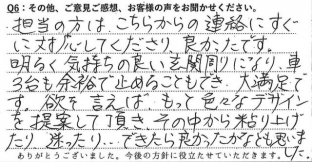 Q6：その他、ご意見ご感想、お客様の声をお聞かせください。
担当の方はこちらからの連絡にすぐ
に対応してくださり、良かったです。
明るく気持ちの良い玄関回りになり、車
3台も余裕で止めることもでき、大満足で
す。欲を言えば、もって色々なデザイン
を提案して頂き、その中から粘り上げ
たり、迷ったり…できたら良かったかなとも思いま
した。
ありがとうございました。今後の方針に役立たせていただきます。